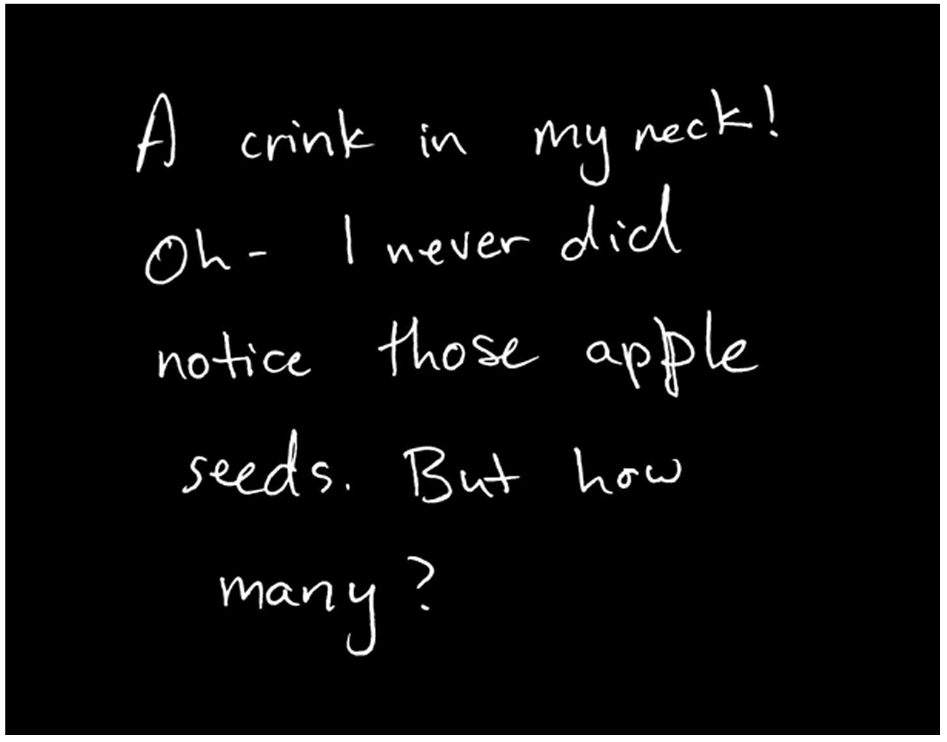 A crink in my neck!
Oh- I never did
notice those apple
seeds. But how
many?